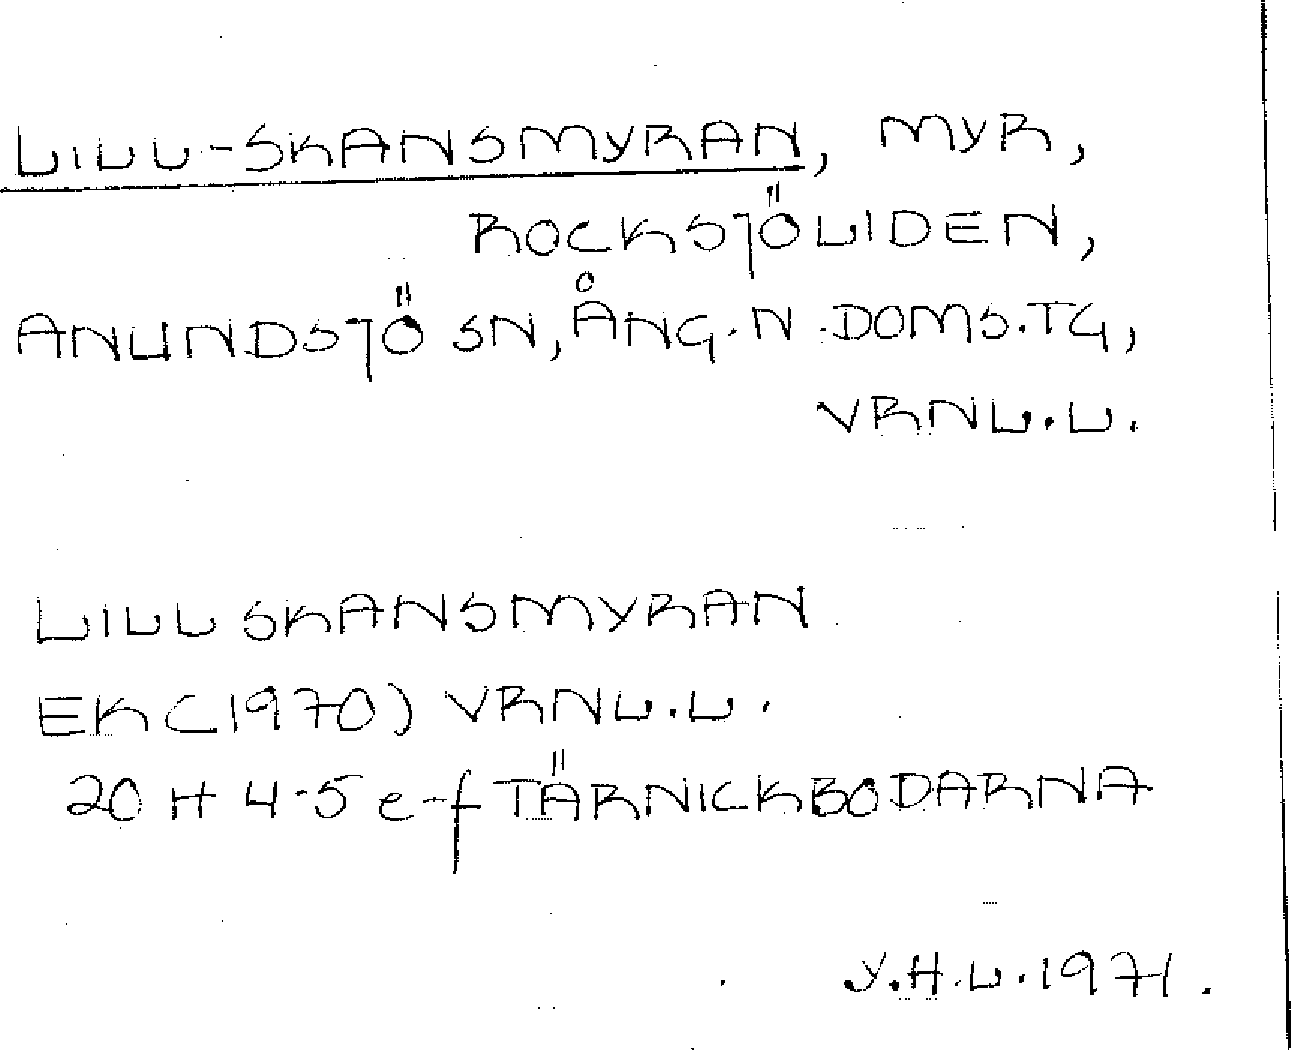 LILL-SKANSMYRAN, MYR,
ROCKSJÖLIDEN,
ANUNDSJÖ SN, ÅNG. N. DOMS.TG,
VRNL.L.
LILLSKANSMYRAN
EK (1970) VRNL.L.
20 H 4-5 e-f TÄRNICKBODARNA
Y.H.L. 1971.